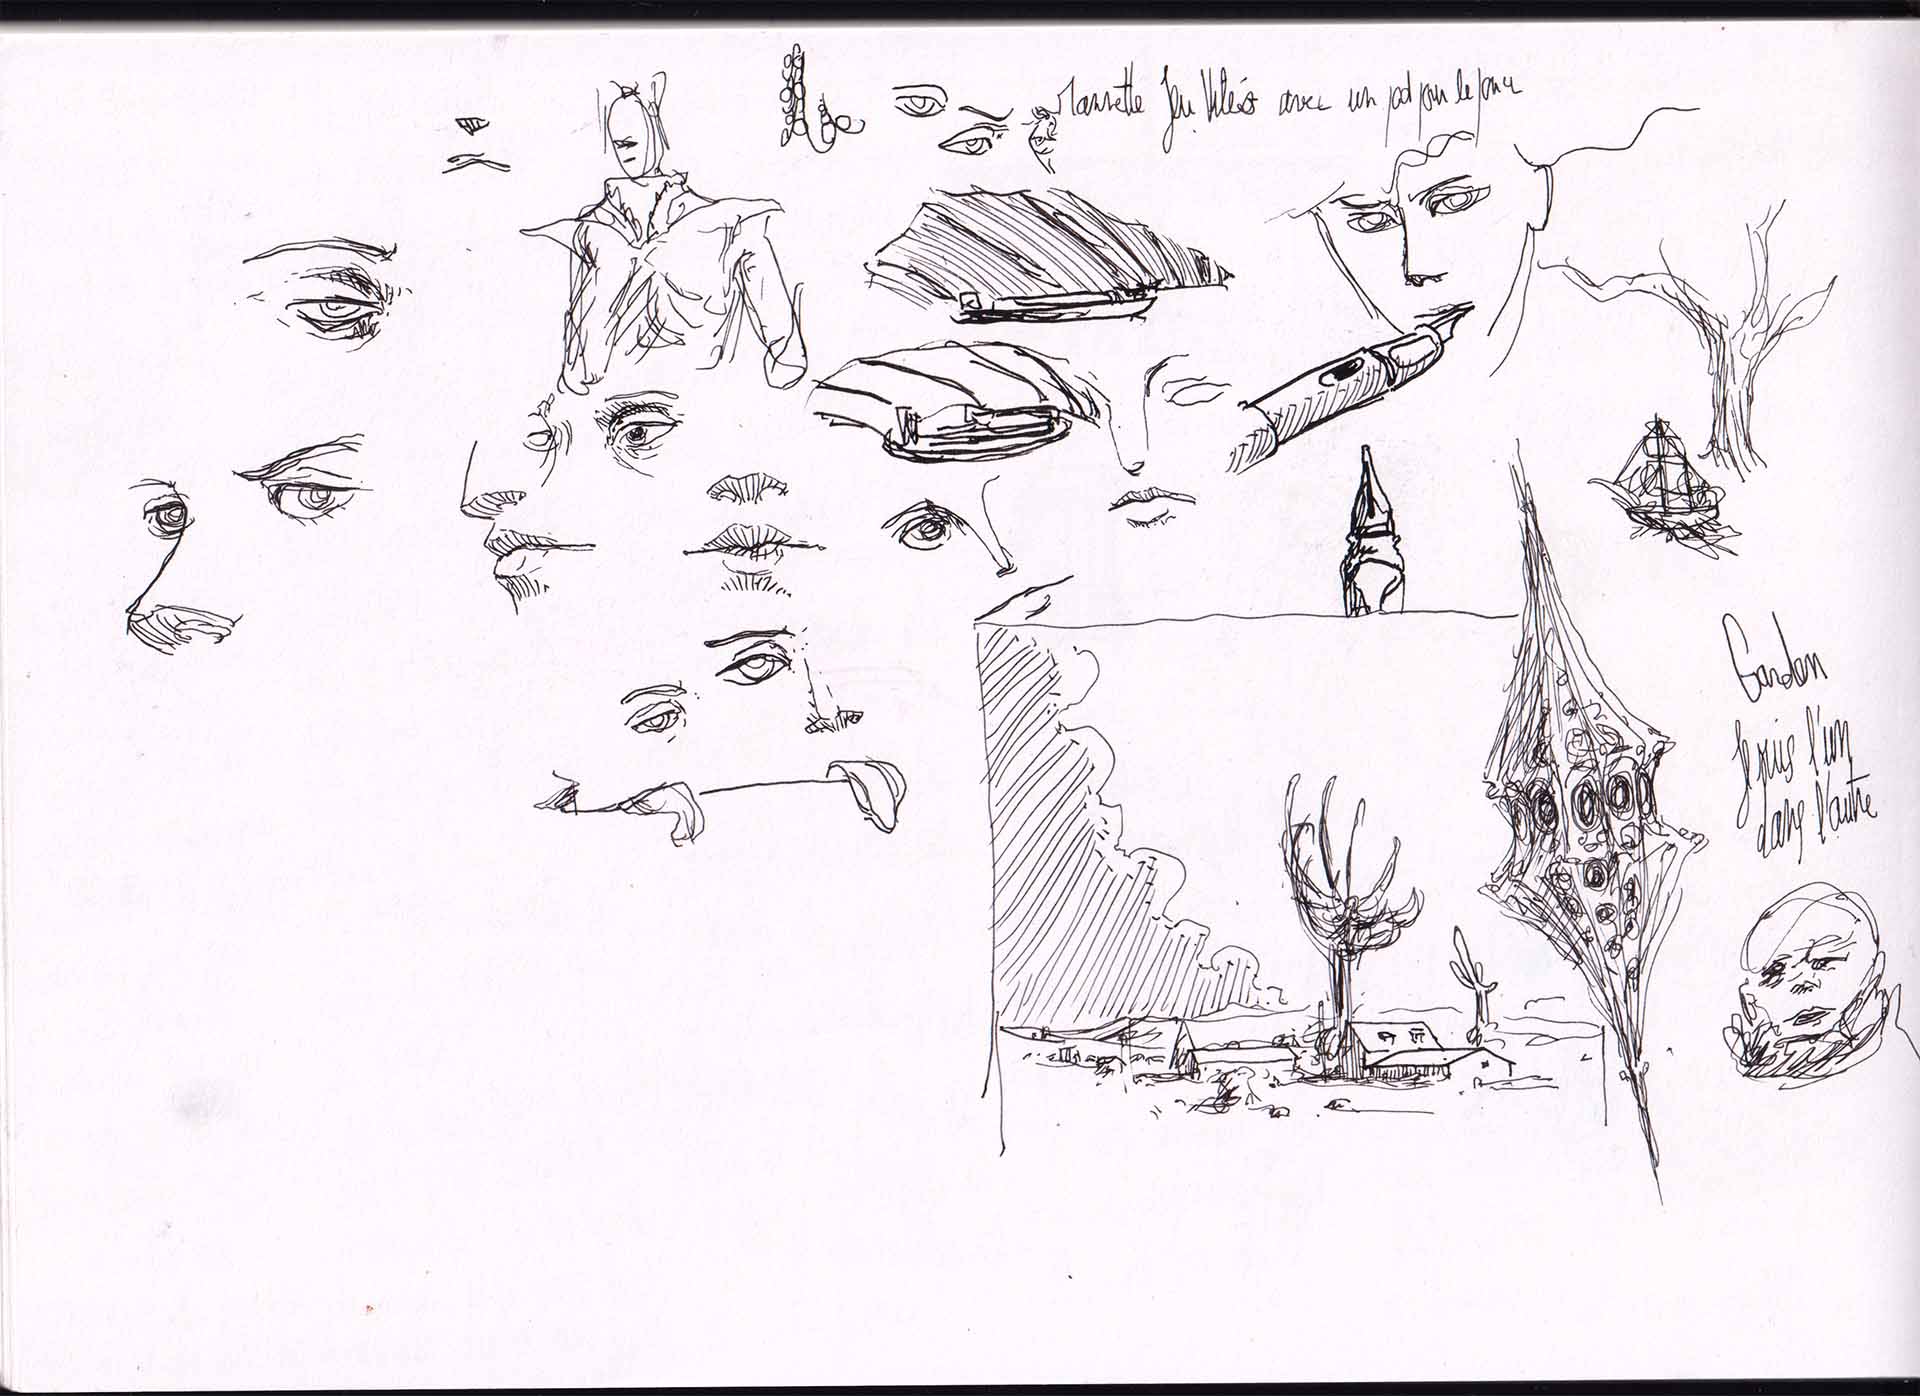 Mannette Jeu Vidéo avec un pad pour le pouce
Gardon
Je suis l'un
dans l'autre